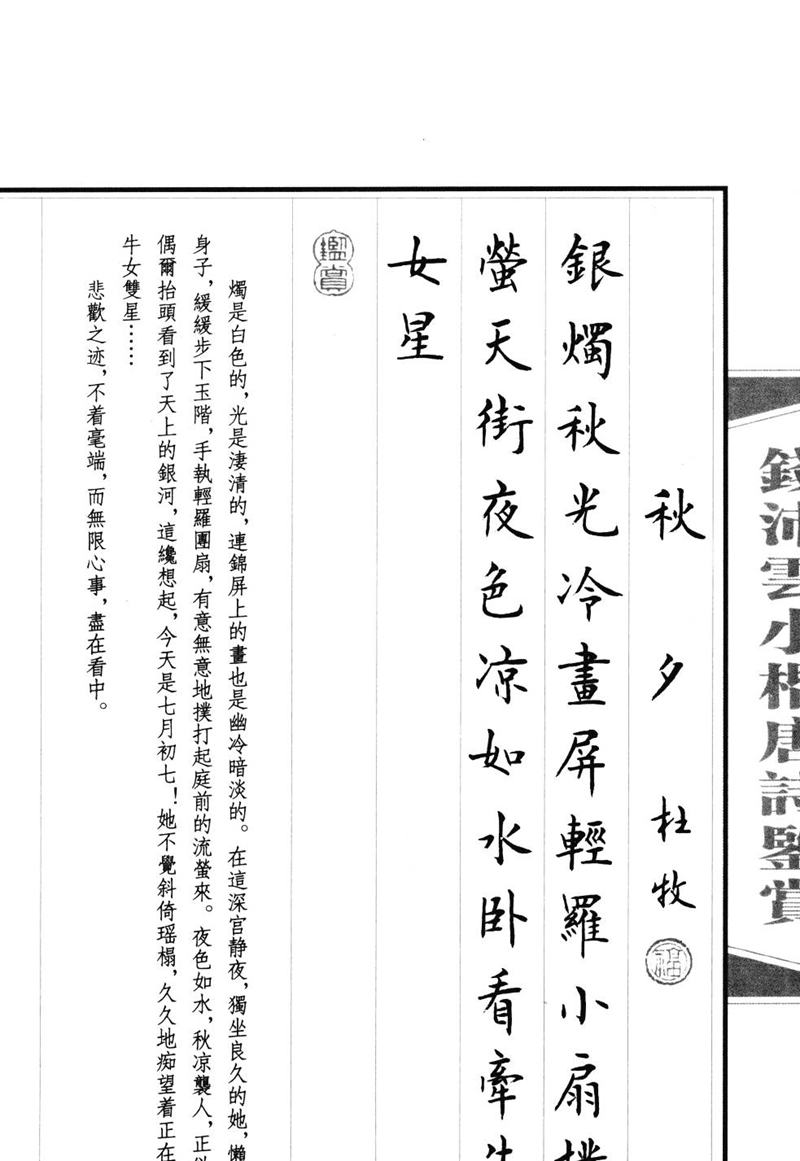 錢沛雲小楷唐詩鑒賞
秋夕 杜牧
銀燭秋光冷畫屏輕羅小扇
螢天街夜色凉如水卧看牽
女星
鑑賞
燭是白色的，光是淒清的，連錦屏上的畫也是幽冷暗淡的。在這深宫静夜，獨坐良久的她，懶
身子，緩緩步下玉階，手執輕羅團扇，有意無意地撲打起庭前的流螢來。夜色如水，秋凉襲人，正
偶爾抬頭看到了天上的銀河，這纔想起，今天是七月初七！她不覺斜倚瑶榻，久久地痴望着正在
牛女雙星……
悲歡之迹，不着毫端，而無限心事，盡在看中。